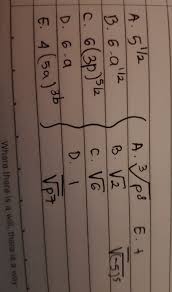 A. 5^1/2
B. 6·a^1/2
C. 6(3p)^5/2
D. 6·a
E. 4(5a)^2b
A. ³√p⁸
B. √2
C. √6
D. 1
√p⁷
E. 1
√(-5)⁵
Where there is a will, there is a way